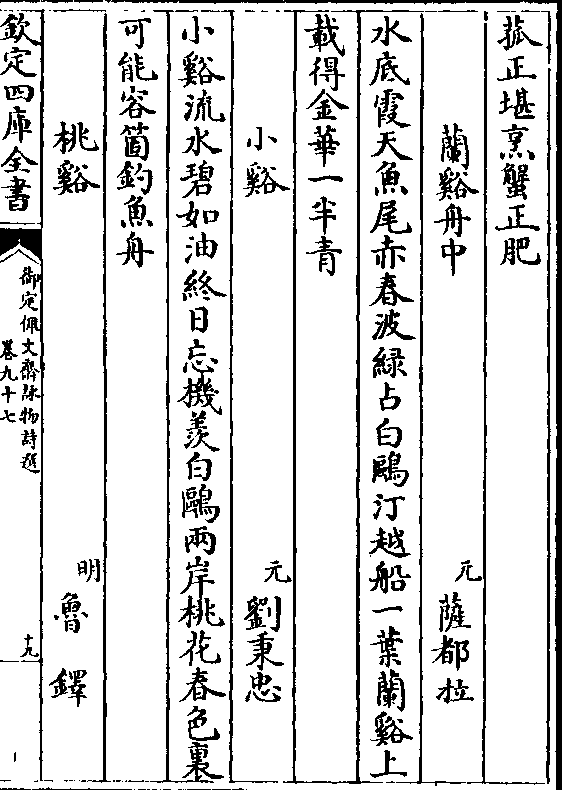 菰正堪烹蟹正肥
蘭谿舟中
元
薩都拉
水底霞天魚尾赤春波綠占白鷗汀越船一葉蘭谿上
載得金華一半青
小谿
元
劉秉忠
小谿流水碧如油終日忘機羨白鷗兩岸桃花春色裏
可能容箇釣魚舟
桃谿
明
魯鐸
欽定四庫全書
御定佩文齋詠物詩選
卷九十七
十九